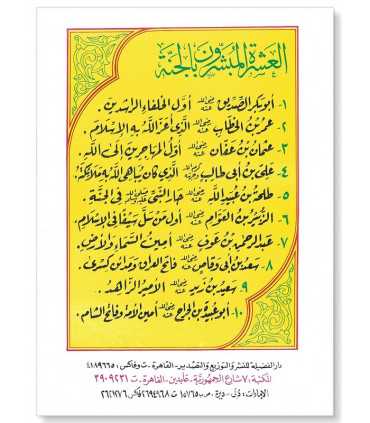 العشرة المبشرون بالجنة
١- أبو بكر الصديق رضي الله عنه أول الخلفاء الراشدين.
٢- عمر بن الخطاب رضي الله عنه الذي أعز الله به الإسلام.
٣- عثمان بن عفان رضي الله عنه أول المهاجرين إلى الله.
٤- علي بن أبي طالب كرم الله وجهه الذي كان يباهي الله به ملائكته.
٥- طلحة بن عبيد الله رضي الله عنه جار النبي ﷺ في الجنة.
٦- الزبير بن العوام رضي الله عنه أول من سل سيفا في الإسلام.
٧- عبد الرحمن بن عوف رضي الله عنه أمين السماء والأرض.
٨- سعد بن أبي وقاص رضي الله عنه فاتح العراق ومدائن كسرى.
٩- سعيد بن زيد رضي الله عنه الأمير الزاهد.
١٠- أبو عبيدة بن الجراح رضي الله عنه أمين الأمة وفاتح الشام.
دار الفضيلة للنشر والتوزيع والتصدير - القاهرة - ت وفاكس ٤١٨٩٦٦٥
المكتبة: ٧ شارع الجمهورية - عابدين - القاهرة - ت ٣٩٠٩٢٣١
الإمارات: دبي - ديرة - ص.ب ١٥٧٦٥ ت ٢٦٩٤٩٦٨ فاكس ٢٦٢١٢٧٦